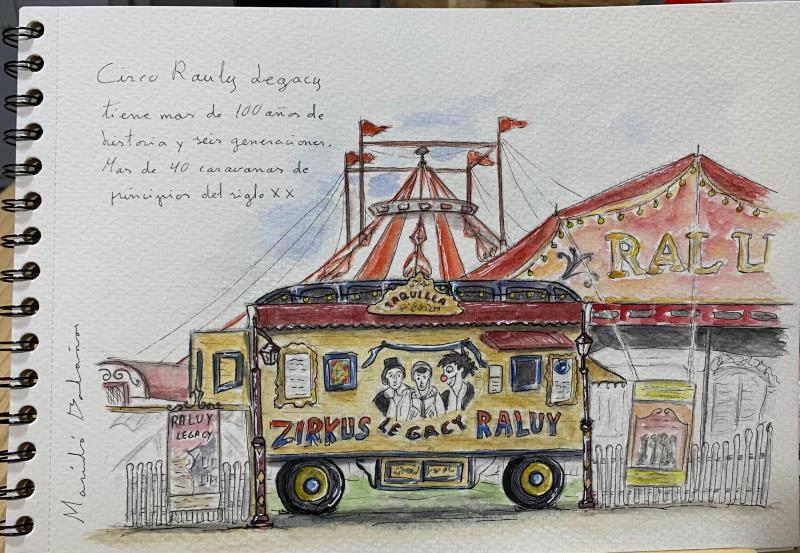 Circo Rauly Legacy
tiene mas de 100 años de
historia y seis generaciones.
Mas de 40 caravanas de
principios del siglo XX
RALU
TAQUILLA
ZIRKUS LEGACY RALUY
RALUY
LEGACY